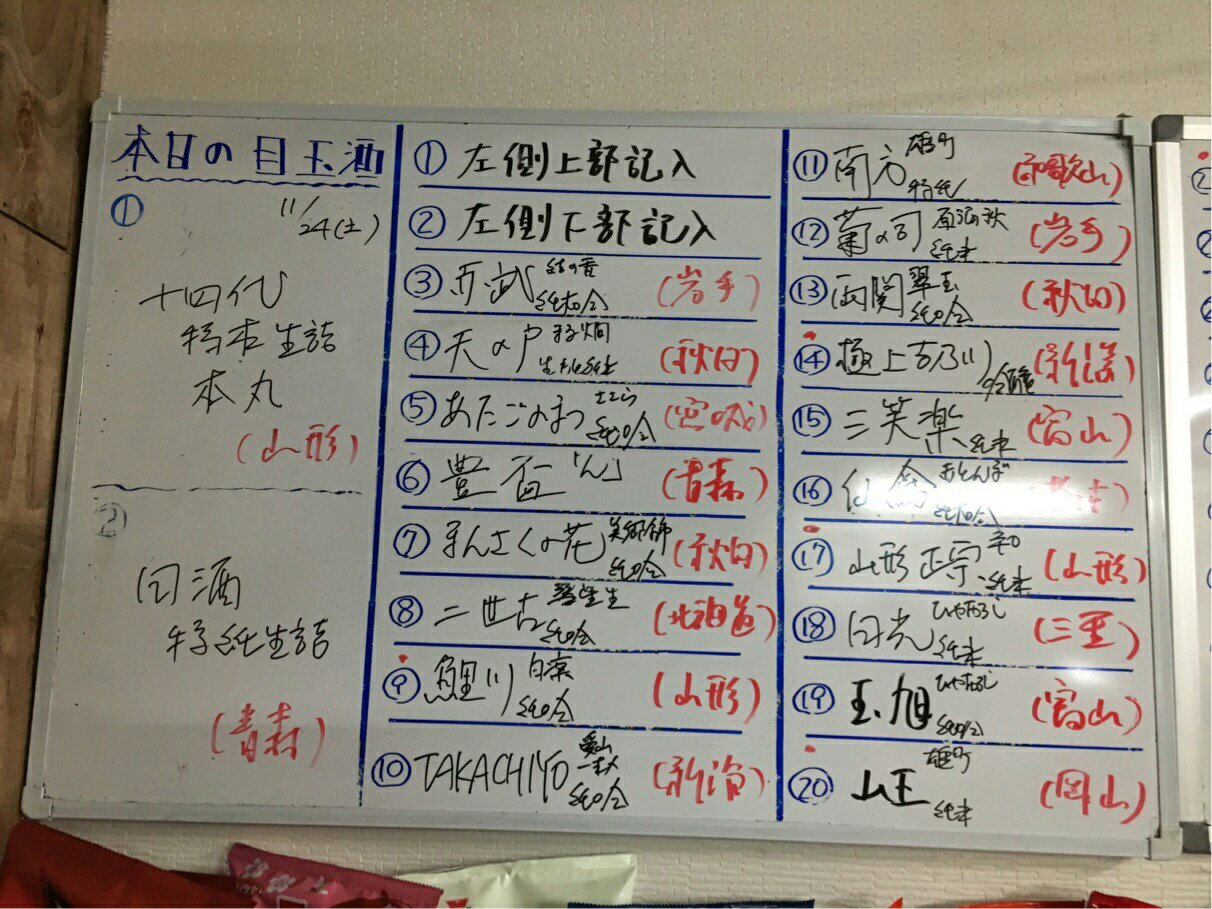 本日の目玉酒
①
11/24(土)
十四代
特本生詰
本丸
(山形)
②
田酒
特純生詰
(青森)
① 左側上部記入
② 左側下部記入
③ 南部 結の香 純大吟 (岩手)
④ 天の戸 純米 (秋田)
⑤ あたごのまつ ささら 純吟 (宮城)
⑥ 豊盃「ん」 (青森)
⑦ まんさくの花 美郷錦 純吟 (秋田)
⑧ 二世古 純吟 (北海道)
⑨ 鯉川 純吟 (山形)
⑩ TAKACHIYO 愛山 純吟 (新潟)
⑪ 南方 雄町 特純 (和歌山)
⑫ 菊の司 原酒 秋 純米 (岩手)
⑬ 両関 翠玉 純吟 (秋田)
⑭ 極上吉乃川 吟醸 (新潟)
⑮ 三笑楽 純米 (富山)
⑯ 仙禽 赤とんぼ
⑰ 山形正宗 辛口 純米 (山形)
⑱ 田光 ひやおろし 純米 (三重)
⑲ 玉旭 ひやおろし 純吟 (富山)
⑳ 山王 雄町 純米 (岡山)